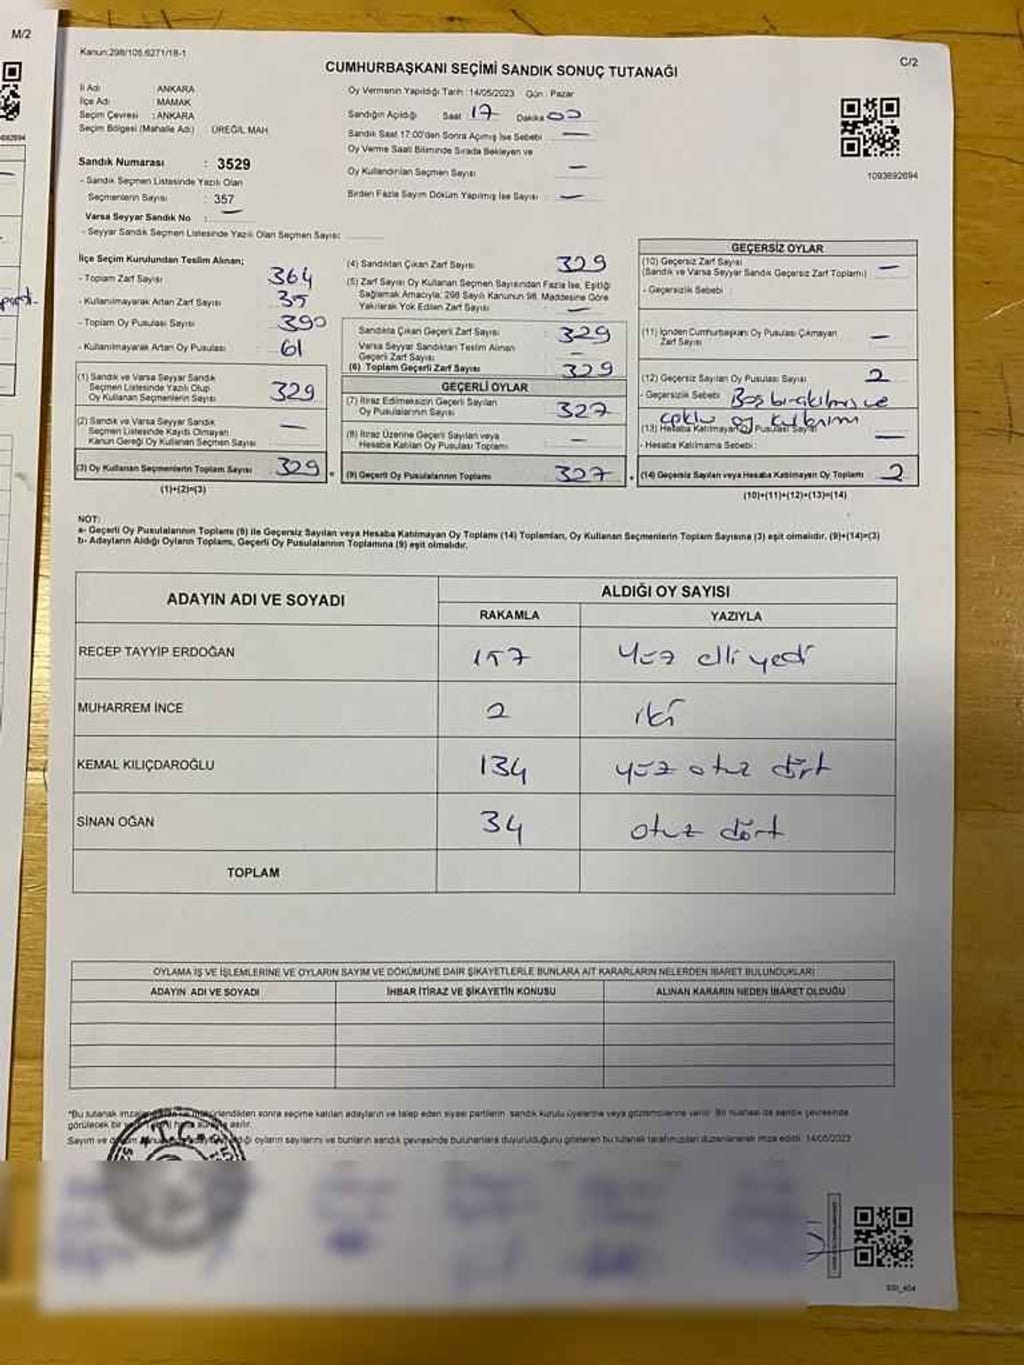 M/2
Kanun:298/105,6271/18-1
C/2
CUMHURBAŞKANI SEÇİMİ SANDIK SONUÇ TUTANAĞI
İl Adı : ANKARA
İlçe Adı : MAMAK
Seçim Çevresi : ANKARA
Seçim Bölgesi (Mahalle Adı) : ÜREĞİL MAH
Sandık Numarası : 3529
- Sandık Seçmen Listesinde Yazılı Olan
Seçmenlerin Sayısı : 357
Varsa Seyyar Sandık No : —
- Seyyar Sandık Seçmen Listesinde Yazılı Olan Seçmen Sayısı:
Oy Vermenin Yapıldığı Tarih : 14/05/2023 Gün : Pazar
Sandığın Açıldığı Saat 17 Dakika 00
Sandık Saat 17:00'den Sonra Açılmış İse Sebebi —
Oy Verme Saati Bitiminde Sırada Bekleyen ve
Oy Kullandırılan Seçmen Sayısı —
Birden Fazla Sayım Döküm Yapılmış İse Sayısı —
1093692694
İlçe Seçim Kurulundan Teslim Alınan;
- Toplam Zarf Sayısı 364
- Kullanılmayarak Artan Zarf Sayısı 35
- Toplam Oy Pusulası Sayısı 390
- Kullanılmayarak Artan Oy Pusulası 61
(1) Sandık ve Varsa Seyyar Sandık
Seçmen Listesinde Yazılı Olup
Oy Kullanan Seçmenlerin Sayısı 329
(2) Sandık ve Varsa Seyyar Sandık
Seçmen Listesinde Kayıtlı Olmayan
Kanun Gereği Oy Kullanan Seçmen Sayısı —
(3) Oy Kullanan Seçmenlerin Toplam Sayısı 329
(1)+(2)=(3)
(4) Sandıktan Çıkan Zarf Sayısı 329
(5) Zarf Sayısı Oy Kullanan Seçmen Sayısından Fazla İse, Eşitliği
Sağlamak Amacıyla; 298 Sayılı Kanunun 98. Maddesine Göre
Yakılarak Yok Edilen Zarf Sayısı —
Sandıkta Çıkan Geçerli Zarf Sayısı 329
Varsa Seyyar Sandıktan Teslim Alınan
Geçerli Zarf Sayısı —
(6) Toplam Geçerli Zarf Sayısı 329
GEÇERLİ OYLAR
(7) İtiraz Edilmeksizin Geçerli Sayılan
Oy Pusulalarının Sayısı 327
(8) İtiraz Üzerine Geçerli Sayılan veya
Hesaba Katılan Oy Pusulası Toplamı —
(9) Geçerli Oy Pusulalarının Toplamı 327
GEÇERSİZ OYLAR
(10) Geçersiz Zarf Sayısı
(Sandık ve Varsa Seyyar Sandık Geçersiz Zarf Toplamı) —
- Geçersizlik Sebebi :
(11) İçinden Cumhurbaşkanı Oy Pusulası Çıkmayan
Zarf Sayısı —
(12) Geçersiz Sayılan Oy Pusulası Sayısı 2
- Geçersizlik Sebebi : Boş bırakılmış ve
oy kullanımı
(13) Hesaba Katılmayan Oy Pusulası Sayısı —
- Hesaba Katılmama Sebebi :
(14) Geçersiz Sayılan veya Hesaba Katılmayan Oy Toplamı 2
(10)+(11)+(12)+(13)=(14)
NOT:
a- Geçerli Oy Pusulalarının Toplamı (9) ile Geçersiz Sayılan veya Hesaba Katılmayan Oy Toplamı (14) Toplamları, Oy Kullanan Seçmenlerin Toplam Sayısına (3) eşit olmalıdır. (9)+(14)=(3)
b- Adayların Aldığı Oyların Toplamı, Geçerli Oy Pusulalarının Toplamına (9) eşit olmalıdır.
ADAYIN ADI VE SOYADI ALDIĞI OY SAYISI
RAKAMLA YAZIYLA
RECEP TAYYİP ERDOĞAN 157 Yüz elli yedi
MUHARREM İNCE 2 iki
KEMAL KILIÇDAROĞLU 134 yüz otuz dört
SİNAN OĞAN 34 otuz dört
TOPLAM
OYLAMA İŞ VE İŞLEMLERİNE VE OYLARIN SAYIM VE DÖKÜMÜNE DAİR ŞİKAYETLERLE BUNLARA AİT KARARLARIN NELERDEN İBARET BULUNDUKLARI
ADAYIN ADI VE SOYADI İHBAR İTİRAZ VE ŞİKAYETİN KONUSU ALINAN KARARIN NEDEN İBARET OLDUĞU
*Bu tutanak sonra seçime katılan adayların ve talep eden siyasi partilerin sandık kurulu üyelerine veya gözlemcilerine verilir. Bir nüshası da sandık çevresinde
görülecek bir asılır.
Sayım ve oyların sayılarını ve bunların sandık çevresinde bulunanlara duyurulduğunu gösteren bu tutanak tarafımızdan düzenlenerek imza edildi. 14/05/2023
T.C.